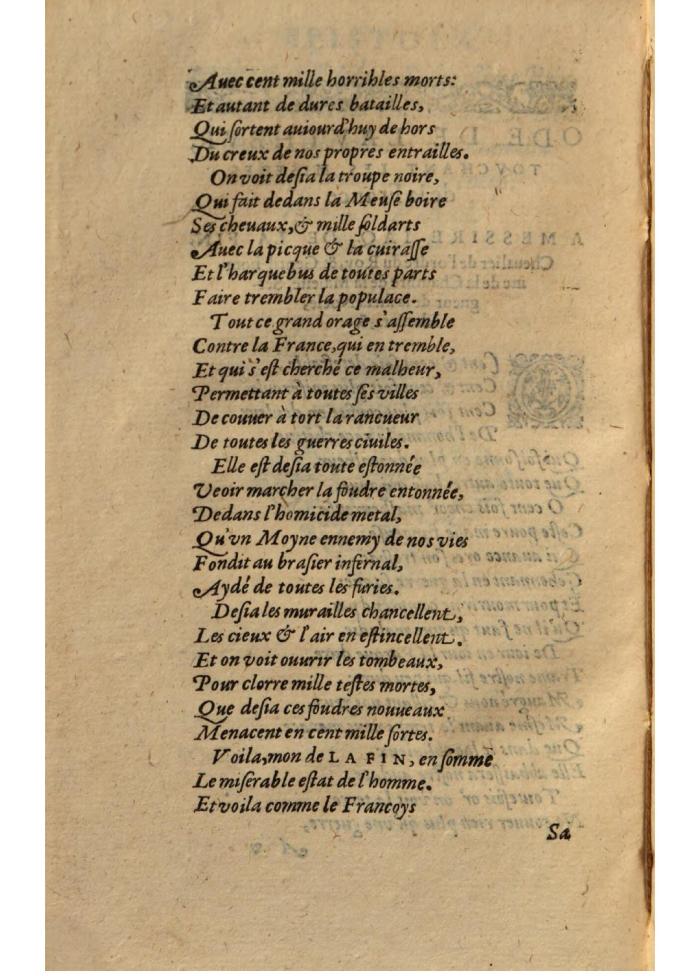 Auec cent mille horribles morts:
Et autant de dures batailles,
Qui ſortent auiourd'huy de hors
Du creux de nos propres entrailles.
On voit deſia la troupe noire,
Qui fait dedans la Meuſe boire
Ses cheuaux, & mille ſoldarts
Auec la picque & la cuiraſſe
Et l'harquebus de toutes parts
Faire trembler la populace.
Tout ce grand orage s'aſſemble
Contre la France, qui en tremble,
Et qui s'eſt cherché ce malheur,
Permettant à toutes ſes villes
De couuer à tort la rancueur
De toutes les guerres ciuiles.
Elle eſt deſia toute eſtonnée
Veoir marcher la foudre entonnée,
Dedans l'homicide metal,
Qu'vn Moyne ennemy de nos vies
Fondit au braſier infernal,
Aydé de toutes les furies.
Deſia les murailles chancellent,
Les cieux & l'air en eſtincellent.
Et on voit ouurir les tombeaux,
Pour clorre mille teſtes mortes,
Que deſia ces foudres nouueaux
Menacent en cent mille ſortes.
Voila, mon de LA FIN, en ſomme
Le miſerable eſtat de l'homme.
Et voila comme le Françoys
Sa